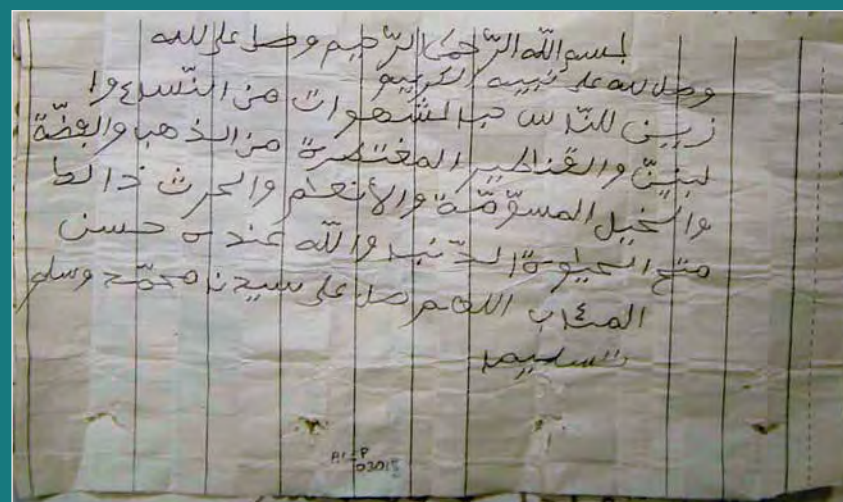 لبسم الله الرّحمن الرّحيم وصل على لله
وصل لله على نبيه الكريم
زيين للنّاس حب الشهوات من النّساء وا
لبنيّن والقناطير المغتصرة من الذهب والبعضّة
والخيل المسوّمّة والأنعم والحرث ذالط
متع الحيوة الدّنيا والله عنده حسن
المئاب اللهم صل على سيدنا محمّد وسلم
تسليما